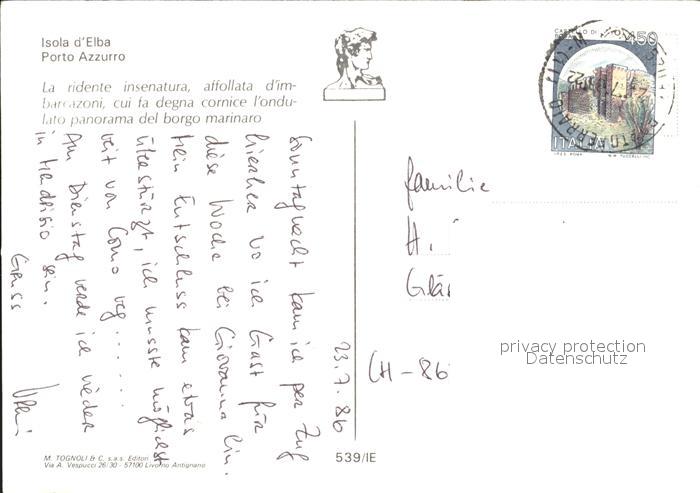 Isola d'Elba
Porto Azzurro
La ridente insenatura, affollata d'im-
barcazoni, cui fa degna cornice l'ondu-
lato panorama del borgo marinaro
450
ITALIA
Sonntagnacht kam ich per Zug
hierher wo ich Gast für
diese Woche bei Giovanna bin.
Mein Entschluss kam etwas
überstürzt, ich musste möglichst
weit von Como weg......
Am Dienstag werde ich wieder
in Mendrisio sein.
Gruss
23.7.86
Familie
H.
Glär
CH-86
privacy protection
Datenschutz
M. TOGNOLI & C. s.a.s. Editori
Via A. Vespucci 26/30 - 57100 Livorno Antignano
539/IE